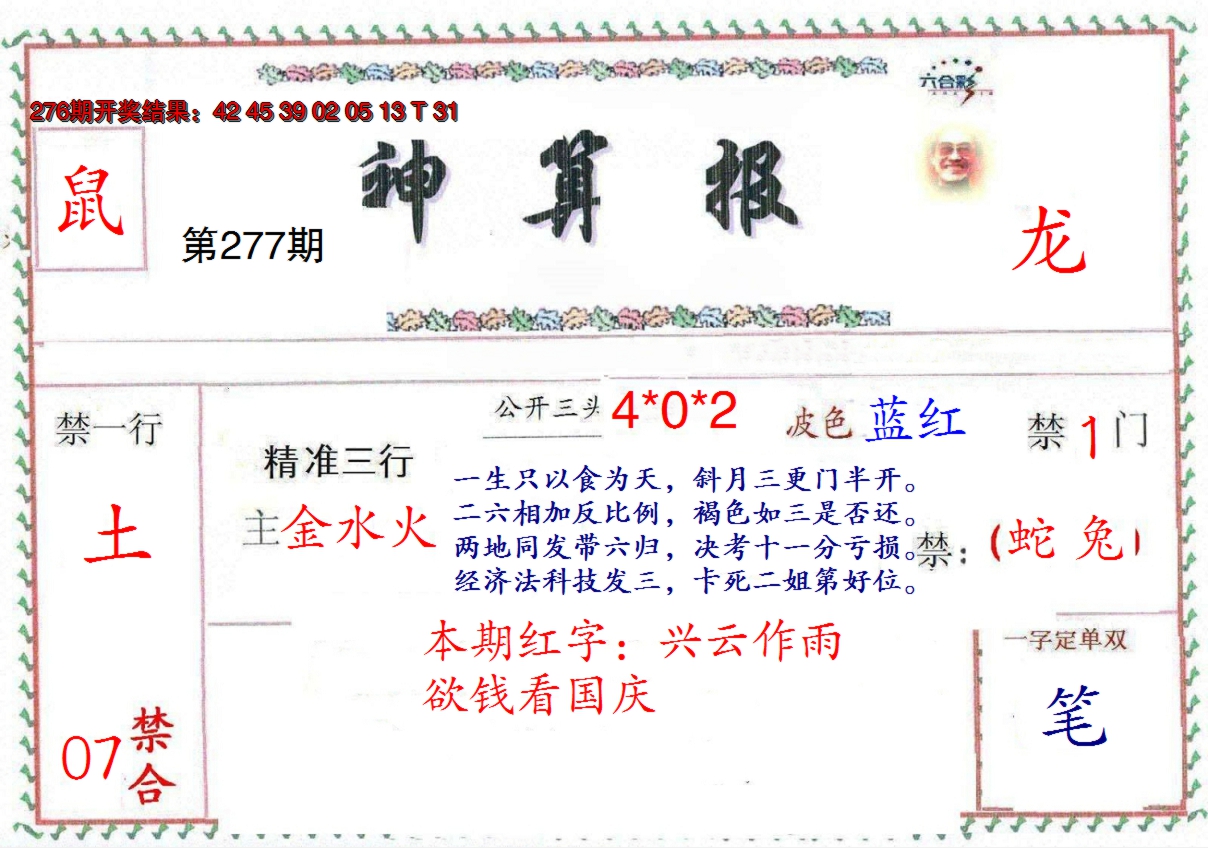 六合彩
276期开奖结果：42 45 39 02 05 13 T 31
神 算 报
鼠
第277期
龙
公开三头 4*0*2
波色 蓝红
禁 1 门
禁一行
土
精准三行
主金水火
一生只以食为天，斜月三更门半开。
二六相加反比例，褐色如三是否还。
两地同发带六归，决考十一分亏损。
经济法科技发三，卡死二姐第好位。
禁：（蛇 兔）
本期红字：兴云作雨
欲钱看国庆
一字定单双
笔
07禁合